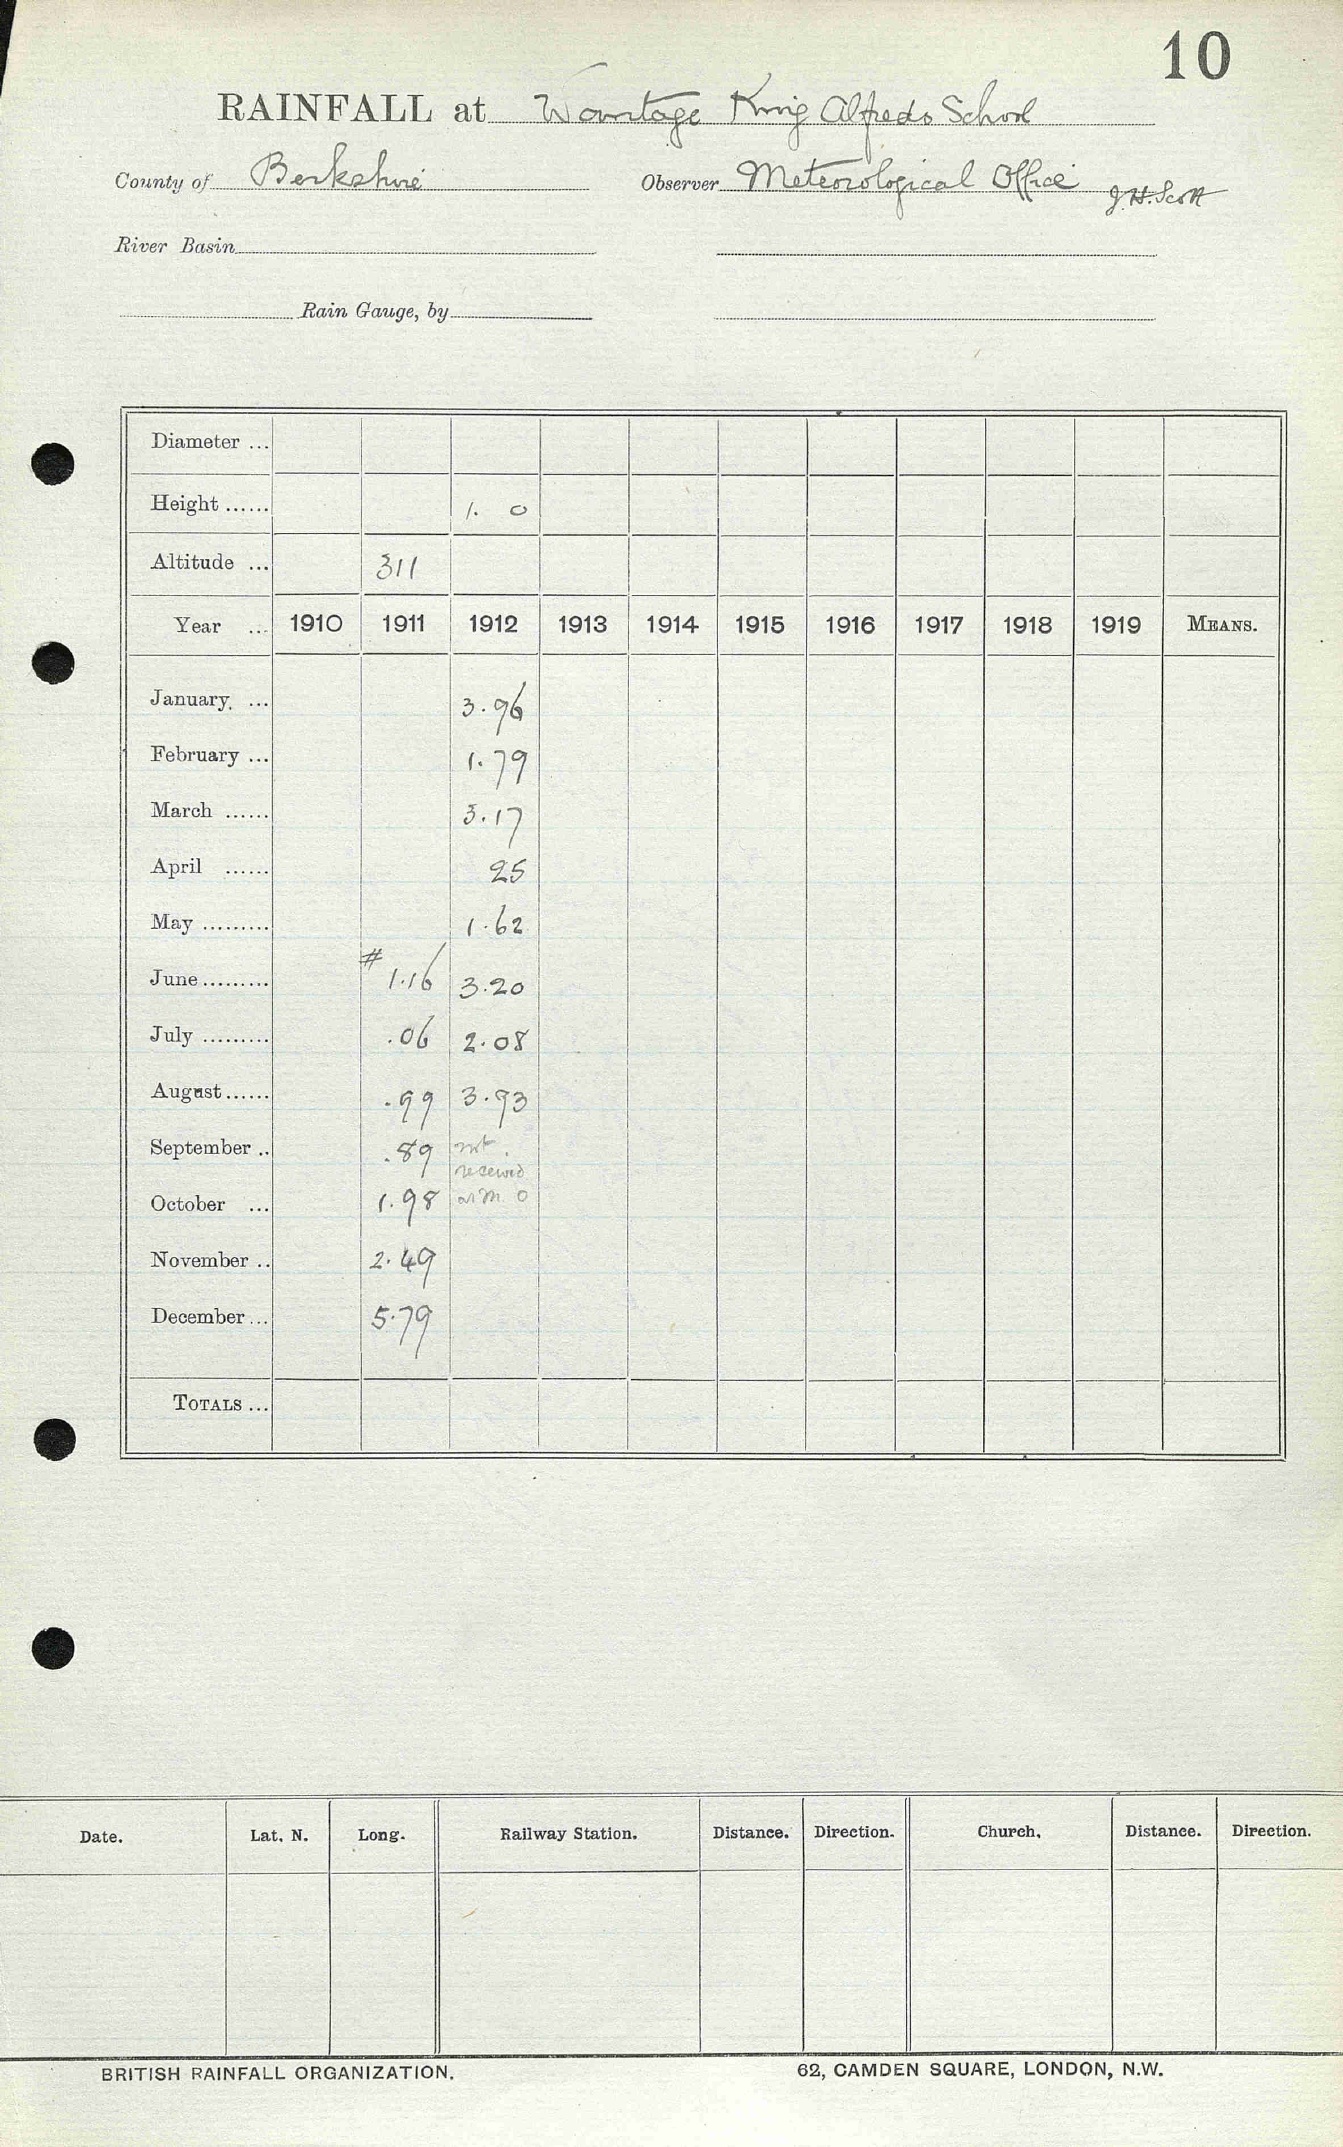 10
RAINFALL at Wantage King Alfreds School
County of Berkshire Observer Meteorological Office J.H. Scott
River Basin
Rain Gauge, by
Diameter ...
Height ...... 1. 0
Altitude ... 311
Year ... 1910 1911 1912 1913 1914 1915 1916 1917 1918 1919 MEANS.
January ... 3.96
February ... 1.79
March ...... 3.17
April ...... 25
May ......... 1.62
June ......... # 1.16 3.20
July ......... .06 2.08
August ...... .99 3.93
September .. .89 not
received
October ... 1.98 at M. O
November .. 2.49
December ... 5.79
TOTALS ...
Date. Lat. N. Long. Railway Station. Distance. Direction. Church. Distance. Direction.
BRITISH RAINFALL ORGANIZATION. 62, CAMDEN SQUARE, LONDON, N.W.